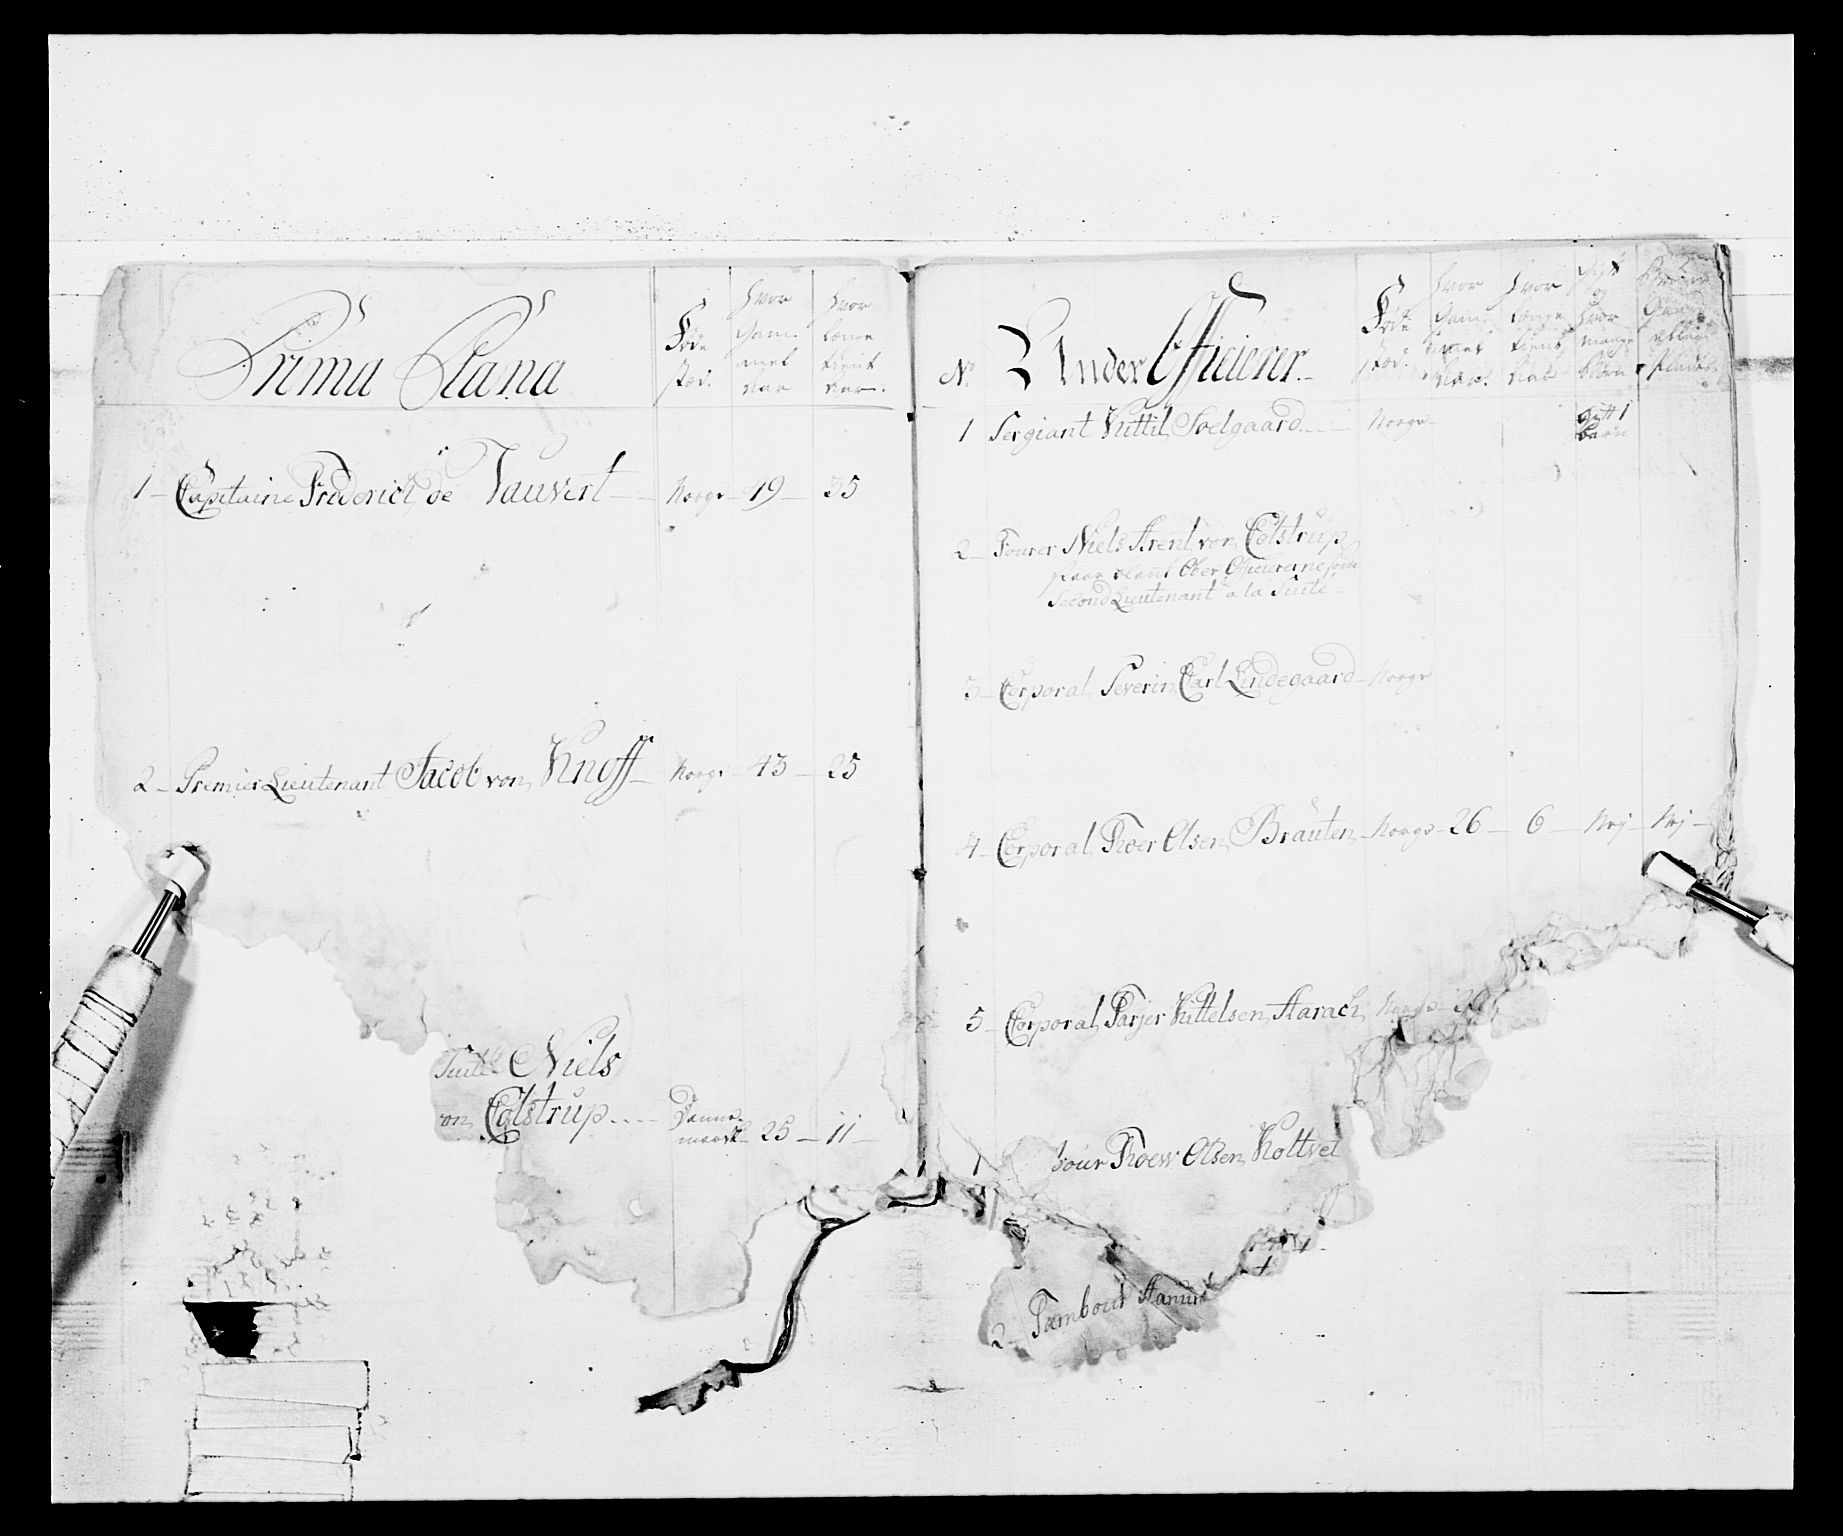 Prima Plana
Føde stæd.
hvor Gam mel aar
hvor længe tient aar.
1 Capitaine Friderich de Vauvert Norge 49 35
2 Premier Lieutenant Jacob von Knoff Norge 43 25
Suite Niels
von Colstrup Danne-
mark 25 11
No. Under Officierer
Føde stæd.
hvor Gam mel aar.
hvor længe tient aar
Gift og hvor mange Børn
1 Sergiant Kittil Soelgaard Norge gift 1
barn
2 Fourer Niels Arent von Colstrup
staar blant Ober Officiererne som
Second Lieutenant a la Suite
3 Corporal Severin Carl Lindegaard Norge
4 Corporal Thoer Olsen Braüten Norge 26 6 Nej Nej
5 Corporal Tarjer Kittelsen Aarach Norge
1 bour Thoew Olsen Holtvet
2 Tambour